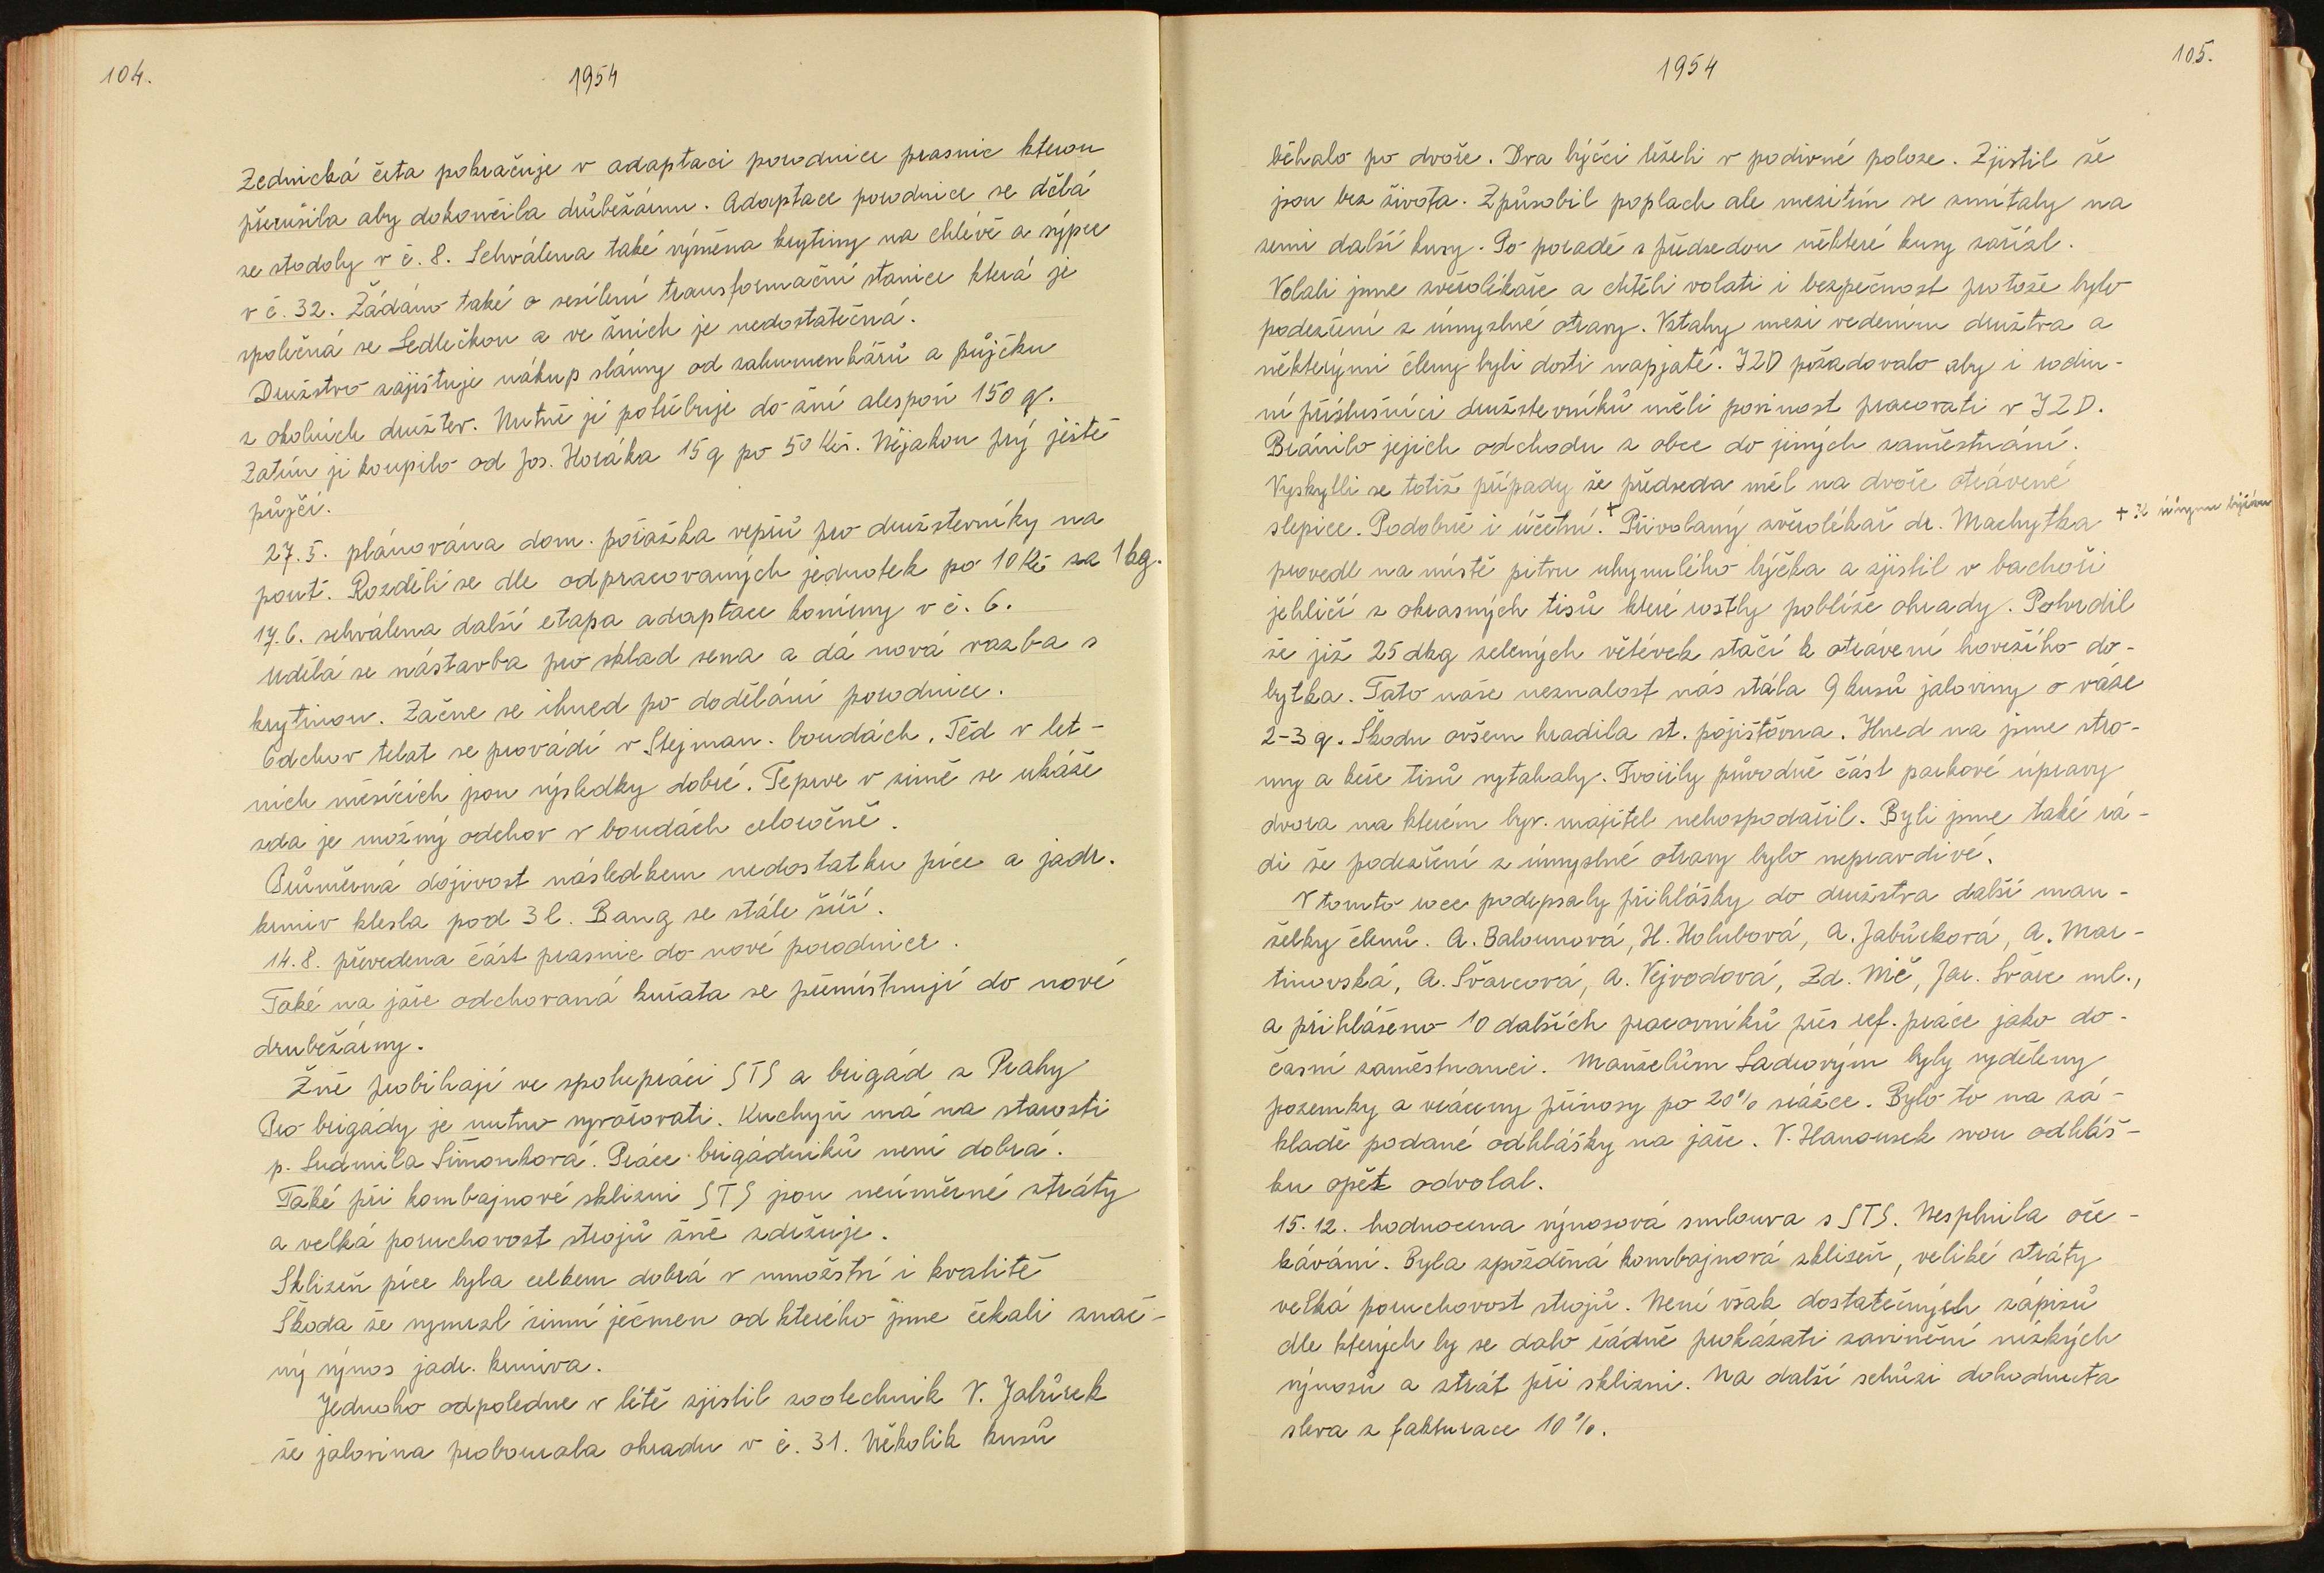 104.
1954
Zednická četa pokračuje v adaptaci porodnice prasnic kterou
přerušila aby dokončila drůbežárnu. Adaptace porodnice se dělá
ze stodoly v č. 8. Schválena také výměna krytiny na chlévě a sýpce
v č. 32. Žádáno také o sesílení transformační stanice která je
společná se Sedlečkou a ve žních je nedostatečná.
Družstvo zajištuje nákup slámy od zahumenkářů a půjčku
z okolních družstev. Nutně jí potřebuje do žní alespoň 150 q.
Zatím ji koupilo od Jos. Horáka 15 q po 50 Kčs. Nějakou prý ještě
půjčí.
27.5. plánována dom. porážka vepřů pro družstevníky na
pout. Rozdělí se dle odpracovaných jednotek po 10 Kčs za 1 kg.
17.6. schválena další etapa adaptace konírny v č. 6.
Udělá se nástavba pro sklad sena a dá nová vazba s
krytinou. Začne se ihned po dodělání porodnice.
Odchov telat se provádí v Stejman. boudách. Těd v let-
ních měsících jsou výsledky dobré. Teprve v zimě se ukáže
zda je možný odchov v boudách celoročně.
Průměrná dojivost následkem nedostatku píce a jadr.
krmiv klesla pod 3 l. Bang se stále šíří.
14.8. převedena část prasnic do nové porodnice.
Také na jaře odchovaná kuřata se přemístnují do nové
drubežárny.
Žně probíhají ve spolupráci STS a brigád z Prahy
Pro brigády je nutno vyvařovati. Kuchyň má na starosti
p. Ludmila Šimonková. Práce brigádníků není dobrá.
Také při kombajnové sklizni STS jsou neúměrné ztráty
a velká poruchovost strojů žně zdržuje.
Sklizeň píce byla celkem dobrá v množství i kvalitě
Škoda že vymrzl zimní ječmen od kterého jsme čekali znač-
ný výnos jadr. krmiva.
Jednoho odpoledne v létě zjistil zootechnik V. Jabůrek
že jalovina probourala ohradu v č. 31. Několik kusů
105.
1954
běhalo po dvoře. Dva býčci leželi v podivné poloze. Zjistil že
jsou bez života. Způsobil poplach ale mezitím se zmítaly na
zemi další kusy. Po poradě s předsedou některé kusy zařízl.
Volali jsme zvěrolékaře a chtěli volati i bezpečnost protože bylo
podezření z úmyslné otravy. Vztahy mezi vedením družtva a
některými členy byli dosti napjaté. JZD požadovalo aby i rodin-
ní příslušníci družstevníků měli povinost pracovati v JZD.
Bránilo jejich odchodu z obce do jiných zaměstnání.
Vyskytli se totiž případy že předseda měl na dvoře otrávené
slepice. Podobně i účetní.+ Přivolaný zvěrolékař dr. Machytka
provedl na místě pitvu uhynulého býčka a zjistil v bachoři
jehličí z okrasných tisů které rostly poblíže ohrady. Potvrdil
že již 25 dkg zelených větévek stačí k otrávení hovězího do-
bytka. Tato naše neznalost nás stála 9 kusů jaloviny o váze
2-3 q. Škodu ovšem hradila st. pojištovna. Hned na jsme stro-
my a keře tisů vytahaly. Tvořily původně část parkové úpravy
dvora na kterém býv. majitel nehospodařil. Byli jsme také rá-
di že podezření z úmyslné otravy bylo nepravdivé.
V tomto roce podepsaly přihlášky do družstva další man-
želky členů. A. Balounová, H. Holubová, A. Jabůrková, A. Mar-
tinovská, A. Švarcová, A. Vejvodová, Zd. Nič, Jar. Švarc ml.,
a přihlášeno 10 dalších pracovníků přes ref. práce jako do-
časní zaměstnanci. Manželům Ladrovým byly vyděleny
pozemky a vráceny přínosy po 20% srážce. Bylo to na zá-
kladě podané odhlášky na jaře. V. Hanousek svou odhláš-
ku opět odvolal.
15.12. hodnocena výnosová smlouva s STS. Nesplnila oče-
kávání. Byla zpožděná kombajnová sklizeň, veliké ztráty
velká poruchovost strojů. Není však dostatečných zápisů
dle kterých by se dalo řádně prokázati zavinění nízkých
výnosů a ztrát při sklizni. Na další schůzi dohodnuta
sleva z fakturace 10%.